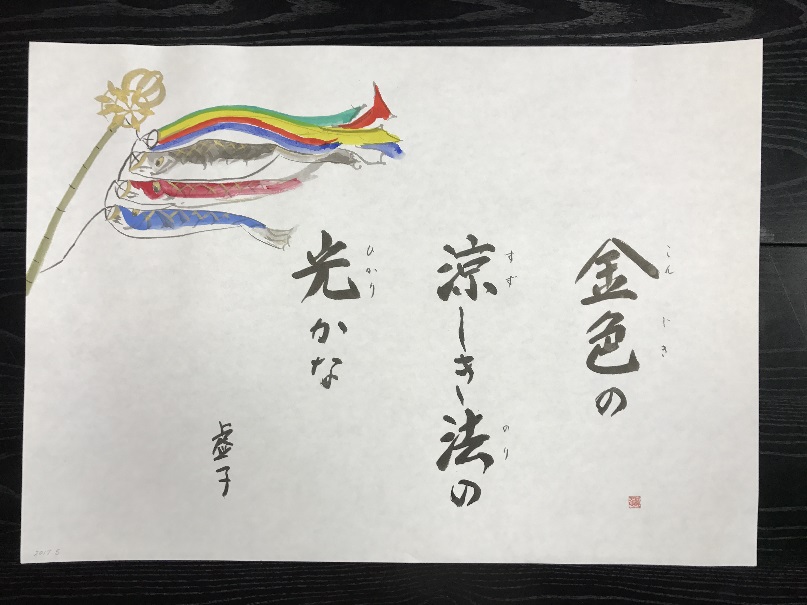 金色の
こんじき
涼しき法の
すず
のり
光かな
ひかり
虚子
2017.5